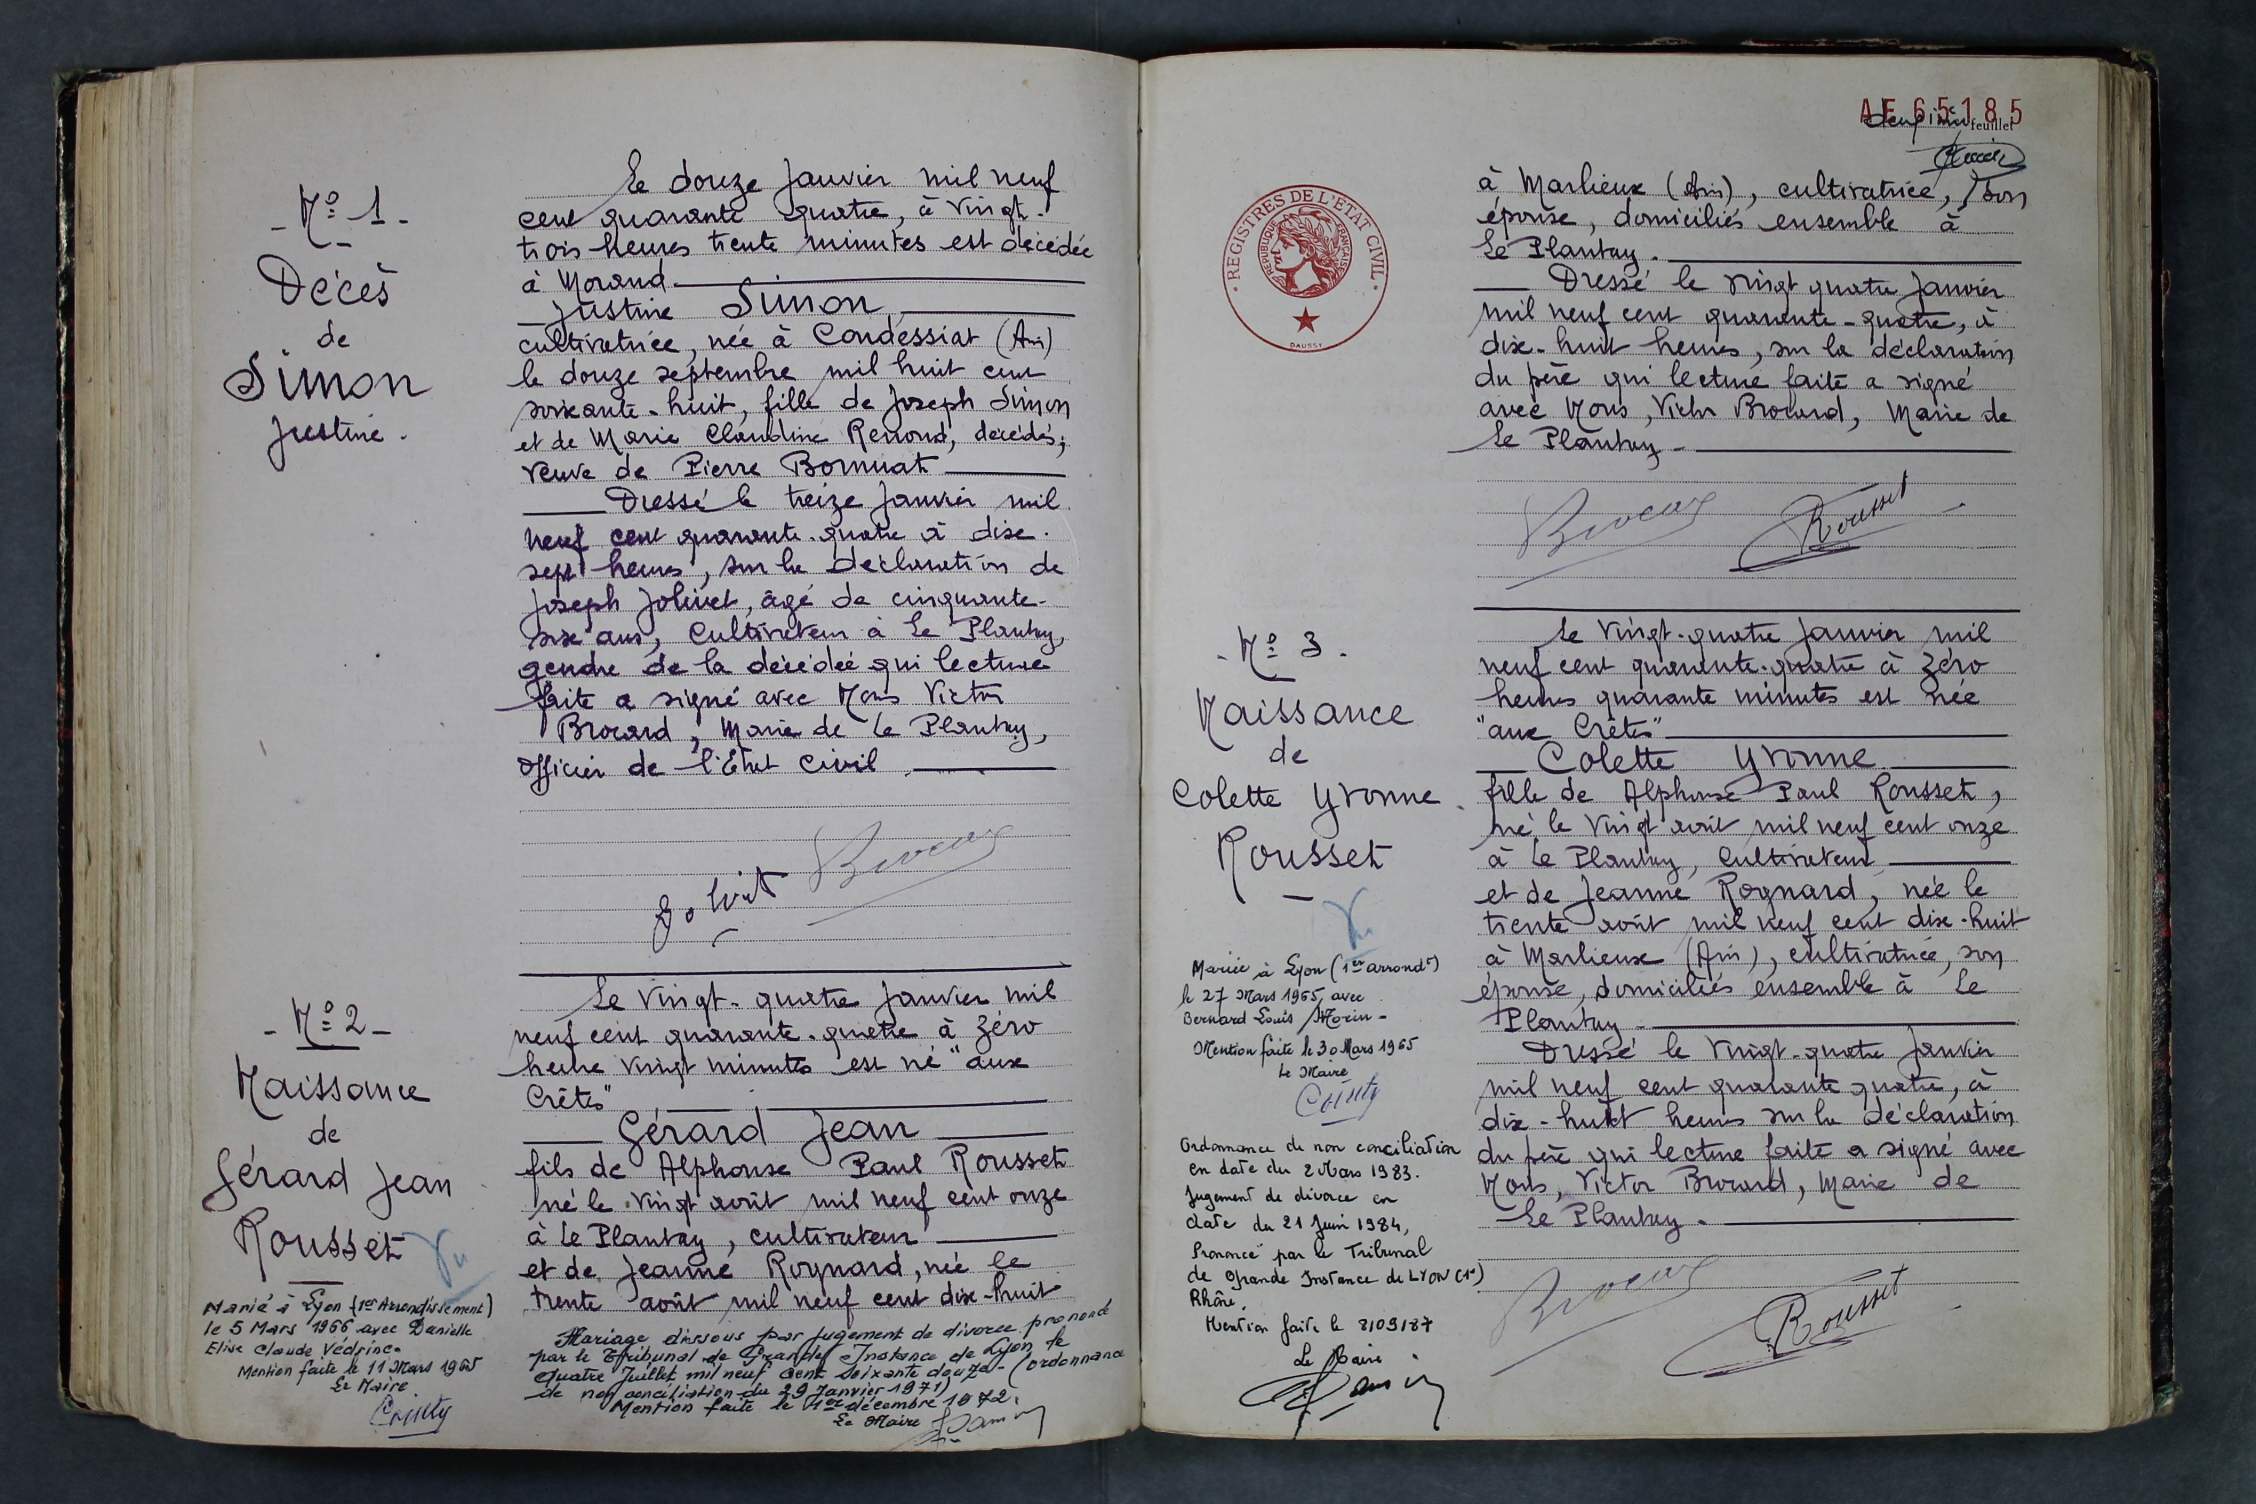 - N° 1 -
Décès
de
Simon
Justine.
Le douze Janvier mil neuf
cent quarante quatre, à vingt-
trois heures trente minutes est décédée
à Morand.
Justine Simon
cultivatrice, née à Condessiat (Ain)
le douze septembre mil huit cent
soixante-huit, fille de Joseph Simon
et de Marie Claudine Renoud, décédés;
veuve de Pierre Bornuat
Dressé le treize Janvier mil
neuf cent quarante-quatre à dix-
sept heures, sur la déclaration de
Joseph Jolivet, âgé de cinquante-
six ans, cultivateur à Le Plantay,
gendre de la décédée qui lecture
faite a signé avec Nous Victor
Brocard, Maire de Le Plantay,
officier de l'Etat Civil
Jolivet Brocard
- N° 2 -
Naissance
de
Gérard Jean
Rousset
Vu
Marié à Lyon (1er Arrondissement)
le 5 Mars 1966 avec Danielle
Elise Claude Védrine.
Mention faite le 11 Mars 1965
Le Maire
Le vingt-quatre Janvier mil
neuf cent quarante-quatre à zéro
heure vingt minutes est né "aux
Crêtes"
Gérard Jean
fils de Alphonse Paul Rousset
né le vingt août mil neuf cent onze
à Le Plantay, cultivateur
et de Jeanne Roynard, née le
trente août mil neuf cent dix-huit
Mariage dissous par jugement de divorce prononcé
par le Tribunal de Grande Instance de Lyon le
quatre Juillet mil neuf cent soixante douze - (ordonnance
de non conciliation du 29 Janvier 1971)
Mention faite le 1er décembre 1972.
Le Maire
AE 65185
deuxième feuillet
REGISTRES DE L'ETAT CIVIL
REPUBLIQUE FRANÇAISE
DAUSSY
à Marlieux (Ain), cultivatrice, son
épouse, domiciliés ensemble à
Le Plantay.
Dressé le vingt quatre Janvier
mil neuf cent quarante-quatre, à
dix-huit heures, sur la déclaration
du père qui lecture faite a signé
avec Nous, Victor Brocard, Maire de
Le Plantay -
Brocard Rousset
- N° 3 -
Naissance
de
Colette Yvonne
Rousset
Vu
Mariée à Lyon (1er arrondt)
le 27 Mars 1965, avec
Bernard Louis Morin -
Mention faite le 30 Mars 1965
Le Maire
Ordonnance de non conciliation
en date du 2 Mars 1983.
Jugement de divorce en
date du 21 Juin 1984,
Prononcé par le Tribunal
de Grande Instance de LYON (1e)
Rhône.
Mention faite le 8/09/87
Le Maire
Le vingt-quatre Janvier mil
neuf cent quarante-quatre à zéro
heures quarante minutes est née
"aux Crêtes"
Colette Yvonne
fille de Alphonse Paul Rousset,
né le vingt août mil neuf cent onze
à Le Plantay, cultivateur
et de Jeanne Roynard, née le
trente août mil neuf cent dix-huit
à Marlieux (Ain), cultivatrice, son
épouse, domiciliés ensemble à Le
Plantay -
Dressé le vingt-quatre Janvier
mil neuf cent quarante quatre, à
dix-huit heures sur la déclaration
du père qui lecture faite a signé avec
Nous, Victor Brocard, Maire de
Le Plantay.
Brocard Rousset